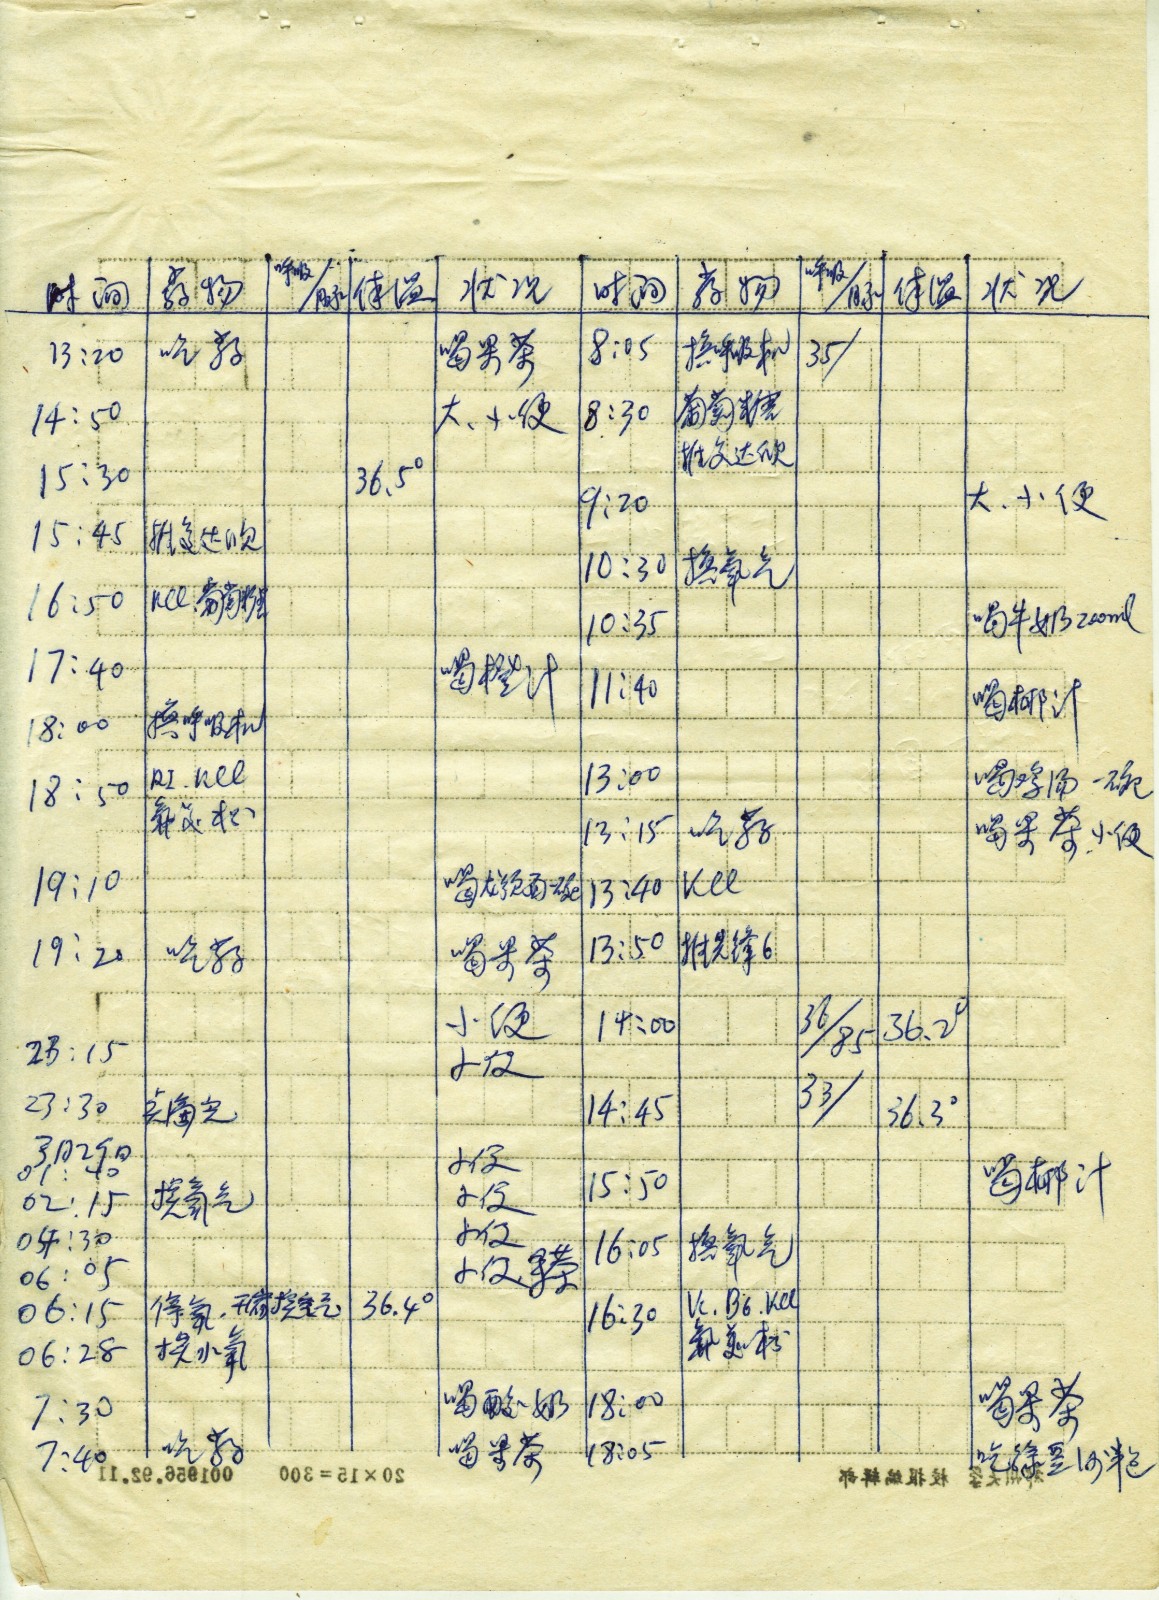 时间 药物 呼吸/脉 体温 状况
13:20 吃药 喝果茶
14:50 大、小便
15:30 36.5°
15:45 推复达欣
16:50 KCl.葡萄糖
17:40 喝橙汁
18:00 换呼吸机
18:50 RI.KCl
氟美松
19:10 喝龙须面一碗
19:20 吃药 喝果茶
小便
23:15 小便
23:30
01:40 小便
02:15 换氧气 小便
04:30 小便
06:05 小便.果茶
06:15 停氧. 36.4°
06:28 换小氧
7:30 喝酸奶
7:40 吃药 喝果茶
时间 药物 呼吸/脉 体温 状况
8:05 换呼吸机 35/
8:30 葡萄糖
推复达欣
9:20 大、小便
10:30 换氧气
10:35 喝牛奶200ml
11:40 喝椰汁
13:00 喝鸡汤一碗
13:15 吃药 喝果茶.小便
13:40 KCl
13:50 推先锋6
14:00 36/85 36.2°
14:45 33/ 36.3°
15:50 喝椰汁
16:05 换氧气
16:30 Vc.B6.KCl
氟美松
18:00 喝果茶
18:05 吃绿豆沙半包
001956.92.11
20×15=300
郑州大学 校报编辑部